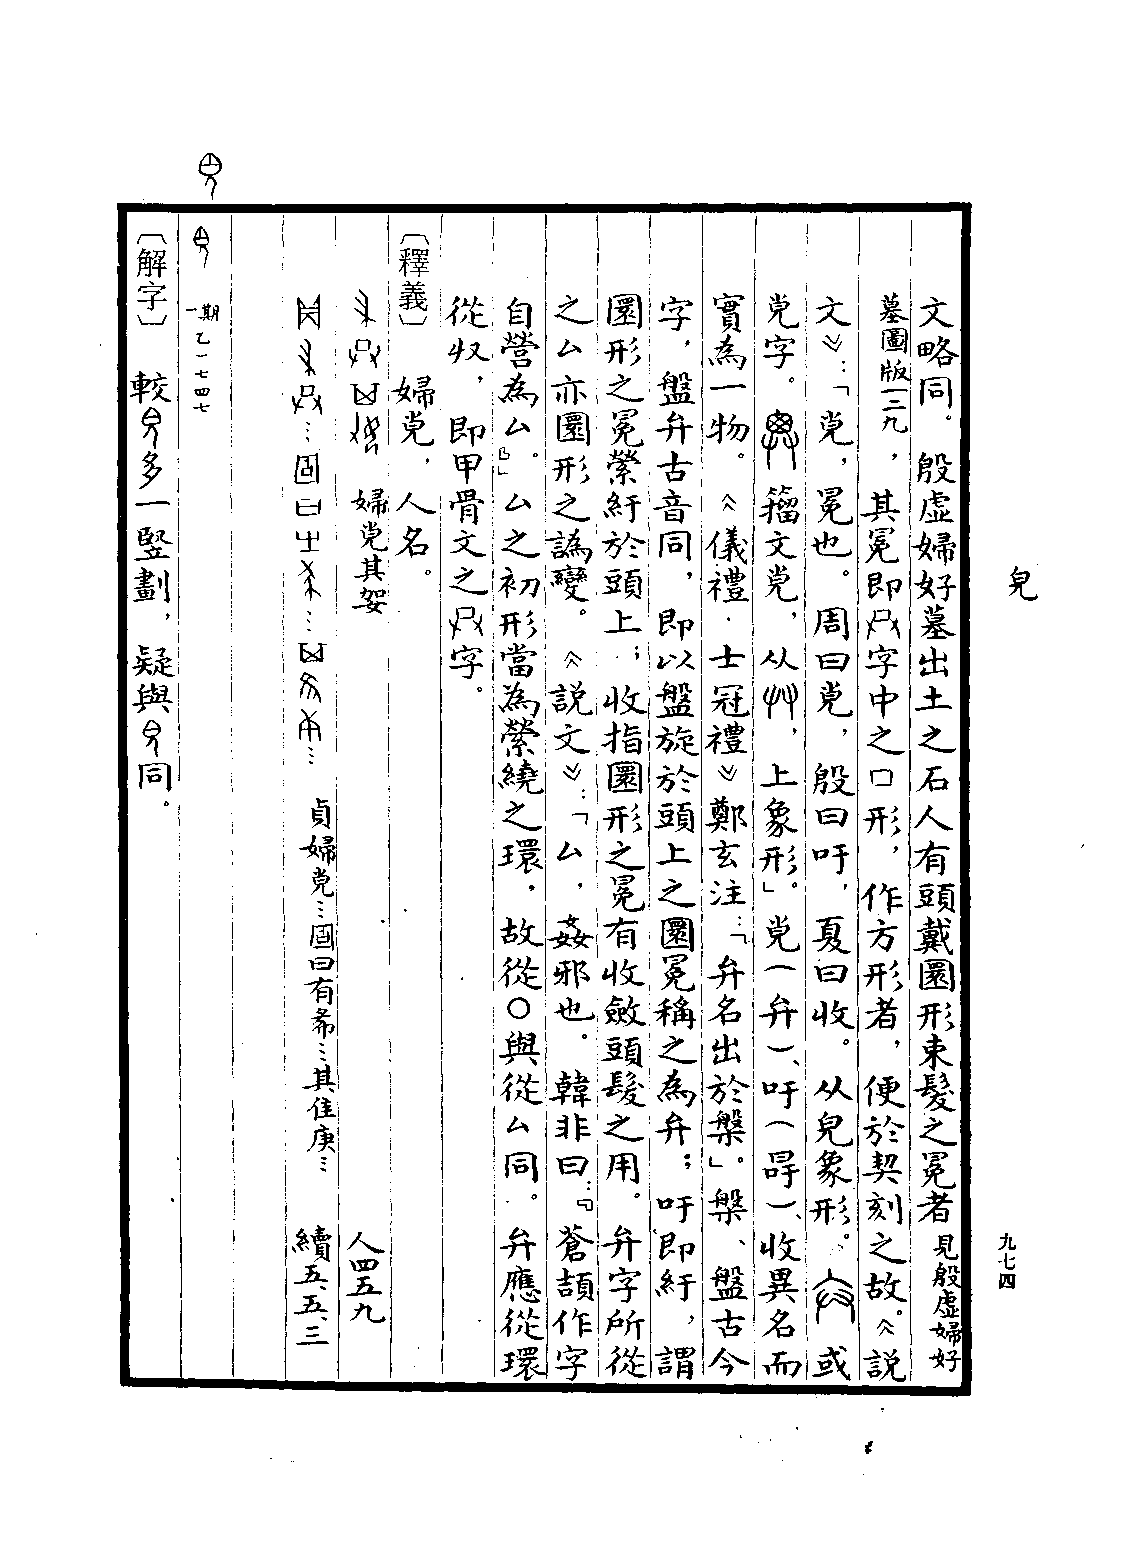 皃
九七四
文略同。殷虛婦好墓出土之石人有頭戴圜形束髮之冕者見殷虛婦好
墓圖版一二九，其冕即字中之口形，作方形者，便於契刻之故。《說
文》：「覍，冕也。周曰覍，殷曰吁，夏曰收。从皃象形。或
覍字。籀文覍，从，上象形」。覍（弁）、吁（冔）、收異名而
實為一物。《儀禮·士冠禮》鄭玄注：「弁名出於槃」。槃、盤古今
字，盤弁古音同，即以盤旋於頭上之圜冕稱之為弁；吁即紆，謂
圜形之冕縈紆於頭上；收指圜形之冕有收斂頭髮之用。弁字所從
之厶亦圜形之譌變。《說文》：「厶，姦邪也。韓非曰：『蒼頡作字
自營為厶。』」厶之初形當為縈繞之環，故從〇與從厶同。弁應從環
從収，即甲骨文之字。
〔釋義〕婦覍，人名。
婦覍其㚸 人四五九
貞婦覍…固曰有希…其隹庚… 續五、五、三
一期乙一七四七
〔解字〕較多一豎劃，疑與同。